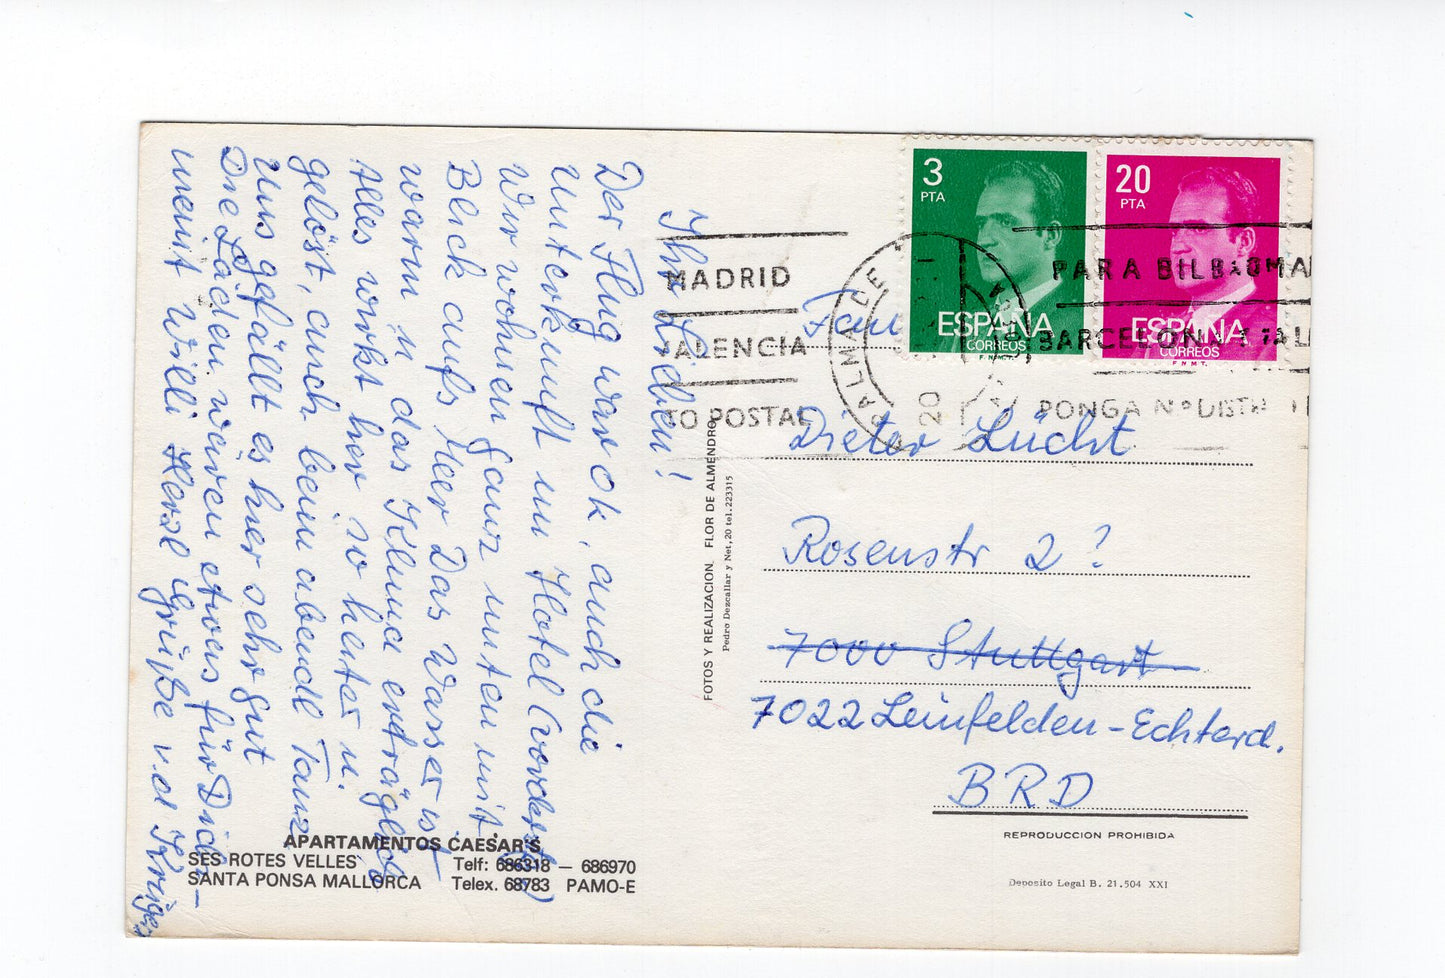 Ihr Lieben!
Der Flug war ok, auch die
Unterkunft im Hotel
Wir wohnen ganz unten mit
Blick aufs Meer Das Wasser ist
warm u das Klima erträglich
Alles wirkt hier so heiter u.
gelöst, auch beim abendl Tanz
Uns gefällt es hier sehr gut
Die Läden wären etwas für Dich –
meint Willi Herzl Grüße v.
3
PTA
ESPAÑA
CORREOS
F.N.M.T.
20
PTA
ESPAÑA
CORREOS
F.N.M.T.
MADRID
VALENCIA
TO POSTAL
PALMA DE
20
PARA BILBAO MA
BARCELONA
PONGA Nº DIST
Fam
Dieter Lücht
Rosenstr 2?
7000 Stuttgart
7022 Leinfelden-Echterd.
BRD
FOTOS Y REALIZACION FLOR DE ALMENDRO
Pedro Dezcallar y Net, 20 tel. 223315
APARTAMENTOS CAESAR'S
SES ROTES VELLES Telf: 686318 – 686970
SANTA PONSA MALLORCA Telex. 68783 PAMO-E
REPRODUCCION PROHIBIDA
Deposito Legal B. 21.504 XXI